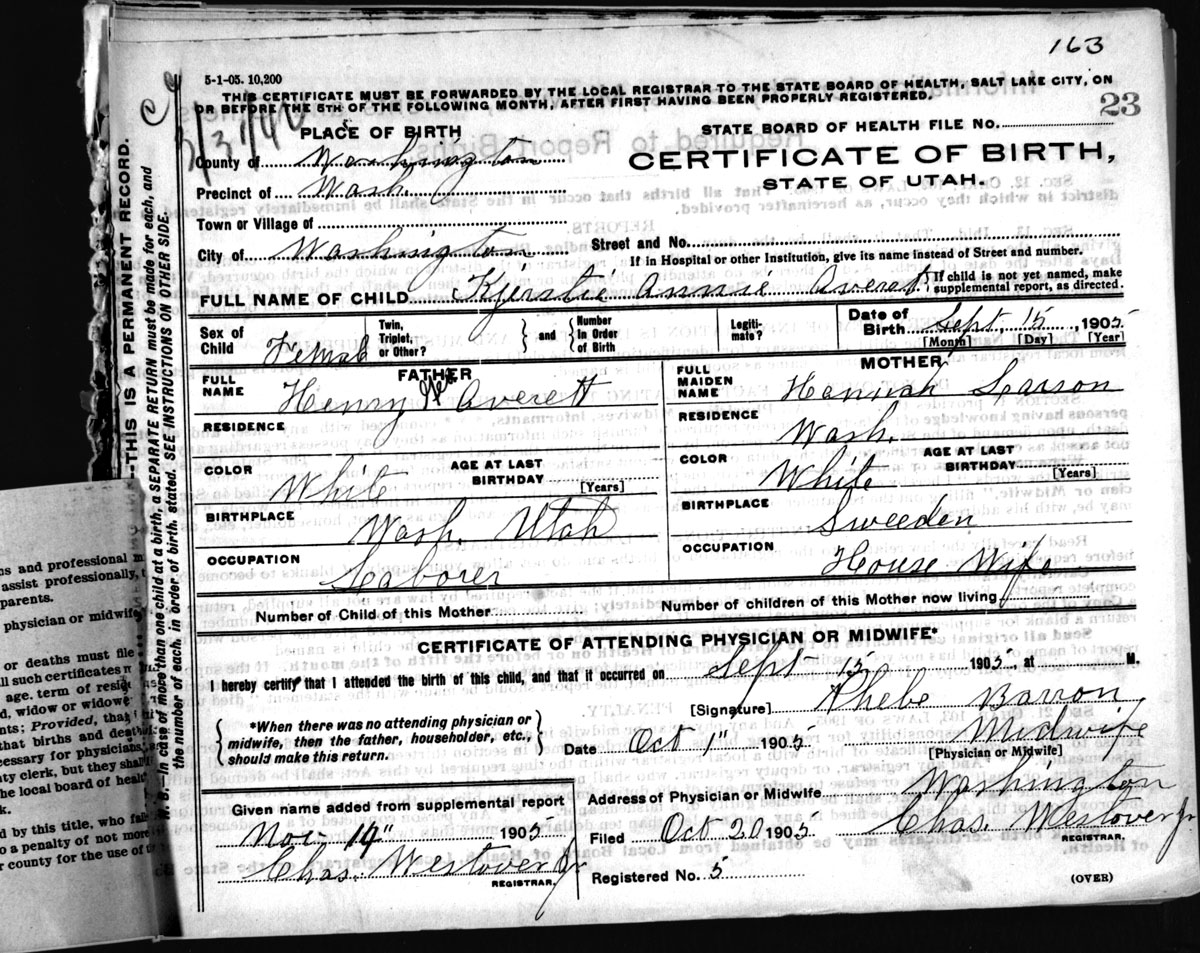 163
5-1-05. 10,200
THIS CERTIFICATE MUST BE FORWARDED BY THE LOCAL REGISTRAR TO THE STATE BOARD OF HEALTH, SALT LAKE CITY, ON
OR BEFORE THE 5TH OF THE FOLLOWING MONTH, AFTER FIRST HAVING BEEN PROPERLY REGISTERED.
23
PLACE OF BIRTH
STATE BOARD OF HEALTH FILE No.
County of Washington
CERTIFICATE OF BIRTH,
STATE OF UTAH.
Precinct of Wash.
Town or Village of
City of Washington
Street and No.
If in Hospital or other Institution, give its name instead of Street and number.
FULL NAME OF CHILD Kjerstie Annie Averett
{If child is not yet named, make
supplemental report, as directed.
Sex of Child Female
Twin, Triplet, or Other?
} and {
Number In Order of Birth
Legiti- mate?
Date of Birth Sept. 15, 1905
[Month] [Day] [Year]
FATHER
FULL NAME Henry Averett
RESIDENCE "
COLOR White
AGE AT LAST BIRTHDAY [Years]
BIRTHPLACE Wash. Utah
OCCUPATION Laborer
MOTHER
FULL MAIDEN NAME Hannah Larson
RESIDENCE Wash.
COLOR White
AGE AT LAST BIRTHDAY [Years]
BIRTHPLACE Sweeden
OCCUPATION House Wife
Number of Child of this Mother
Number of children of this Mother now living
CERTIFICATE OF ATTENDING PHYSICIAN OR MIDWIFE*
I hereby certify that I attended the birth of this child, and that it occurred on Sept 15 1905, at M.
[Signature] Phebe Barron
{*When there was no attending physician or
midwife, then the father, householder, etc.,
should make this return.}
Date Oct 1" 1905
Midwife
[Physician or Midwife]
Address of Physician or Midwife Washington
Given name added from supplemental report
Nov- 14" 1905
Chas. Westover Jr
REGISTRAR.
Filed Oct 20 1905
Chas. Westover Jr
REGISTRAR.
Registered No. 5
(OVER)
—THIS IS A PERMANENT RECORD.
N. B.—In case of more than one child at a birth, a SEPARATE RETURN must be made for each, and
the number of each, in order of birth, stated. SEE INSTRUCTIONS ON OTHER SIDE.
cs and professional
assist professionally,
parents.
physician or midwife
or deaths must file
ll such certificates
age, term of
d, widow or widowe
nts; Provided, that
that births and death
cessary for physicians,
ty clerk, but they shall
he local board of heal
k.
d by this title, who
o a penalty of not more
r county for the use of